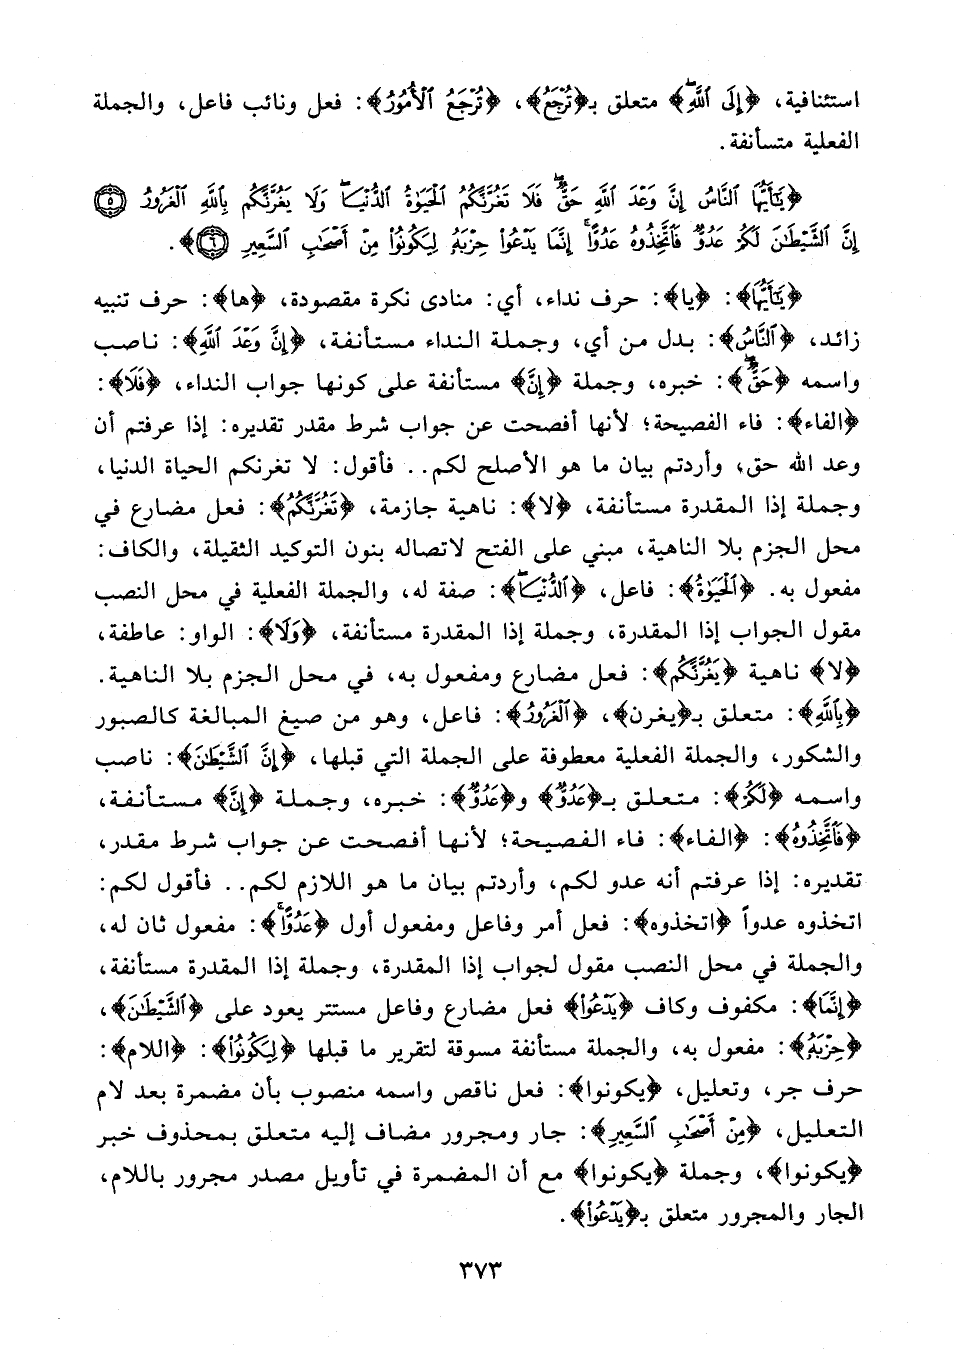 استئنافية، ﴿إِلَى ٱللَّهِ﴾ متعلق بـ﴿تُرْجَعُ﴾، ﴿تُرْجَعُ ٱلْأُمُورُ﴾: فعل ونائب فاعل، والجملة
الفعلية متسأنفة.
﴿يَٰٓأَيُّهَا ٱلنَّاسُ إِنَّ وَعْدَ ٱللَّهِ حَقٌّۖ فَلَا تَغُرَّنَّكُمُ ٱلْحَيَوٰةُ ٱلدُّنْيَاۖ وَلَا يَغُرَّنَّكُم بِٱللَّهِ ٱلْغَرُورُ ۝٥
إِنَّ ٱلشَّيْطَٰنَ لَكُمْ عَدُوٌّ فَٱتَّخِذُوهُ عَدُوًّاۚ إِنَّمَا يَدْعُوا۟ حِزْبَهُۥ لِيَكُونُوا۟ مِنْ أَصْحَٰبِ ٱلسَّعِيرِ ۝٦﴾.
﴿يَٰٓأَيُّهَا﴾: ﴿يا﴾: حرف نداء، أي: منادى نكرة مقصودة، ﴿ها﴾: حرف تنبيه
زائد، ﴿ٱلنَّاسُ﴾: بدل من أي، وجملة النداء مستأنفة، ﴿إِنَّ وَعْدَ ٱللَّهِ﴾: ناصب
واسمه ﴿حَقٌّۖ﴾: خبره، وجملة ﴿إِنَّ﴾ مستأنفة على كونها جواب النداء، ﴿فَلَا﴾:
﴿الفاء﴾: فاء الفصيحة؛ لأنها أفصحت عن جواب شرط مقدر تقديره: إذا عرفتم أن
وعد الله حق، وأردتم بيان ما هو الأصلح لكم.. فأقول: لا تغرنكم الحياة الدنيا،
وجملة إذا المقدرة مستأنفة، ﴿لا﴾: ناهية جازمة، ﴿تَغُرَّنَّكُمُ﴾: فعل مضارع في
محل الجزم بلا الناهية، مبني على الفتح لاتصاله بنون التوكيد الثقيلة، والكاف:
مفعول به. ﴿ٱلْحَيَوٰةُ﴾: فاعل، ﴿ٱلدُّنْيَاۖ﴾: صفة له، والجملة الفعلية في محل النصب
مقول الجواب إذا المقدرة، وجملة إذا المقدرة مستأنفة، ﴿وَلَا﴾: الواو: عاطفة،
﴿لا﴾ ناهية ﴿يَغُرَّنَّكُم﴾: فعل مضارع ومفعول به، في محل الجزم بلا الناهية.
﴿بِٱللَّهِ﴾: متعلق بـ﴿يغرن﴾، ﴿ٱلْغَرُورُ﴾: فاعل، وهو من صيغ المبالغة كالصبور
والشكور، والجملة الفعلية معطوفة على الجملة التي قبلها، ﴿إِنَّ ٱلشَّيْطَٰنَ﴾: ناصب
واسمه ﴿لَكُمْ﴾: متعلق بـ﴿عَدُوٌّ﴾ و﴿عَدُوٌّ﴾: خبره، وجملة ﴿إِنَّ﴾ مستأنفة،
﴿فَٱتَّخِذُوهُ﴾: ﴿الفاء﴾: فاء الفصيحة؛ لأنها أفصحت عن جواب شرط مقدر،
تقديره: إذا عرفتم أنه عدو لكم، وأردتم بيان ما هو اللازم لكم.. فأقول لكم:
اتخذوه عدواً ﴿اتخذوه﴾: فعل أمر وفاعل ومفعول أول ﴿عَدُوًّاۚ﴾: مفعول ثان له،
والجملة في محل النصب مقول لجواب إذا المقدرة، وجملة إذا المقدرة مستأنفة،
﴿إِنَّمَا﴾: مكفوف وكاف ﴿يَدْعُوا۟﴾ فعل مضارع وفاعل مستتر يعود على ﴿ٱلشَّيْطَٰنَ﴾،
﴿حِزْبَهُۥ﴾: مفعول به، والجملة مستأنفة مسوقة لتقرير ما قبلها ﴿لِيَكُونُوا۟﴾: ﴿اللام﴾:
حرف جر، وتعليل، ﴿يكونوا﴾: فعل ناقص واسمه منصوب بأن مضمرة بعد لام
التعليل، ﴿مِنْ أَصْحَٰبِ ٱلسَّعِيرِ﴾: جار ومجرور مضاف إليه متعلق بمحذوف خبر
﴿يكونوا﴾، وجملة ﴿يكونوا﴾ مع أن المضمرة في تأويل مصدر مجرور باللام،
الجار والمجرور متعلق بـ﴿يَدْعُوا۟﴾.
٣٧٣